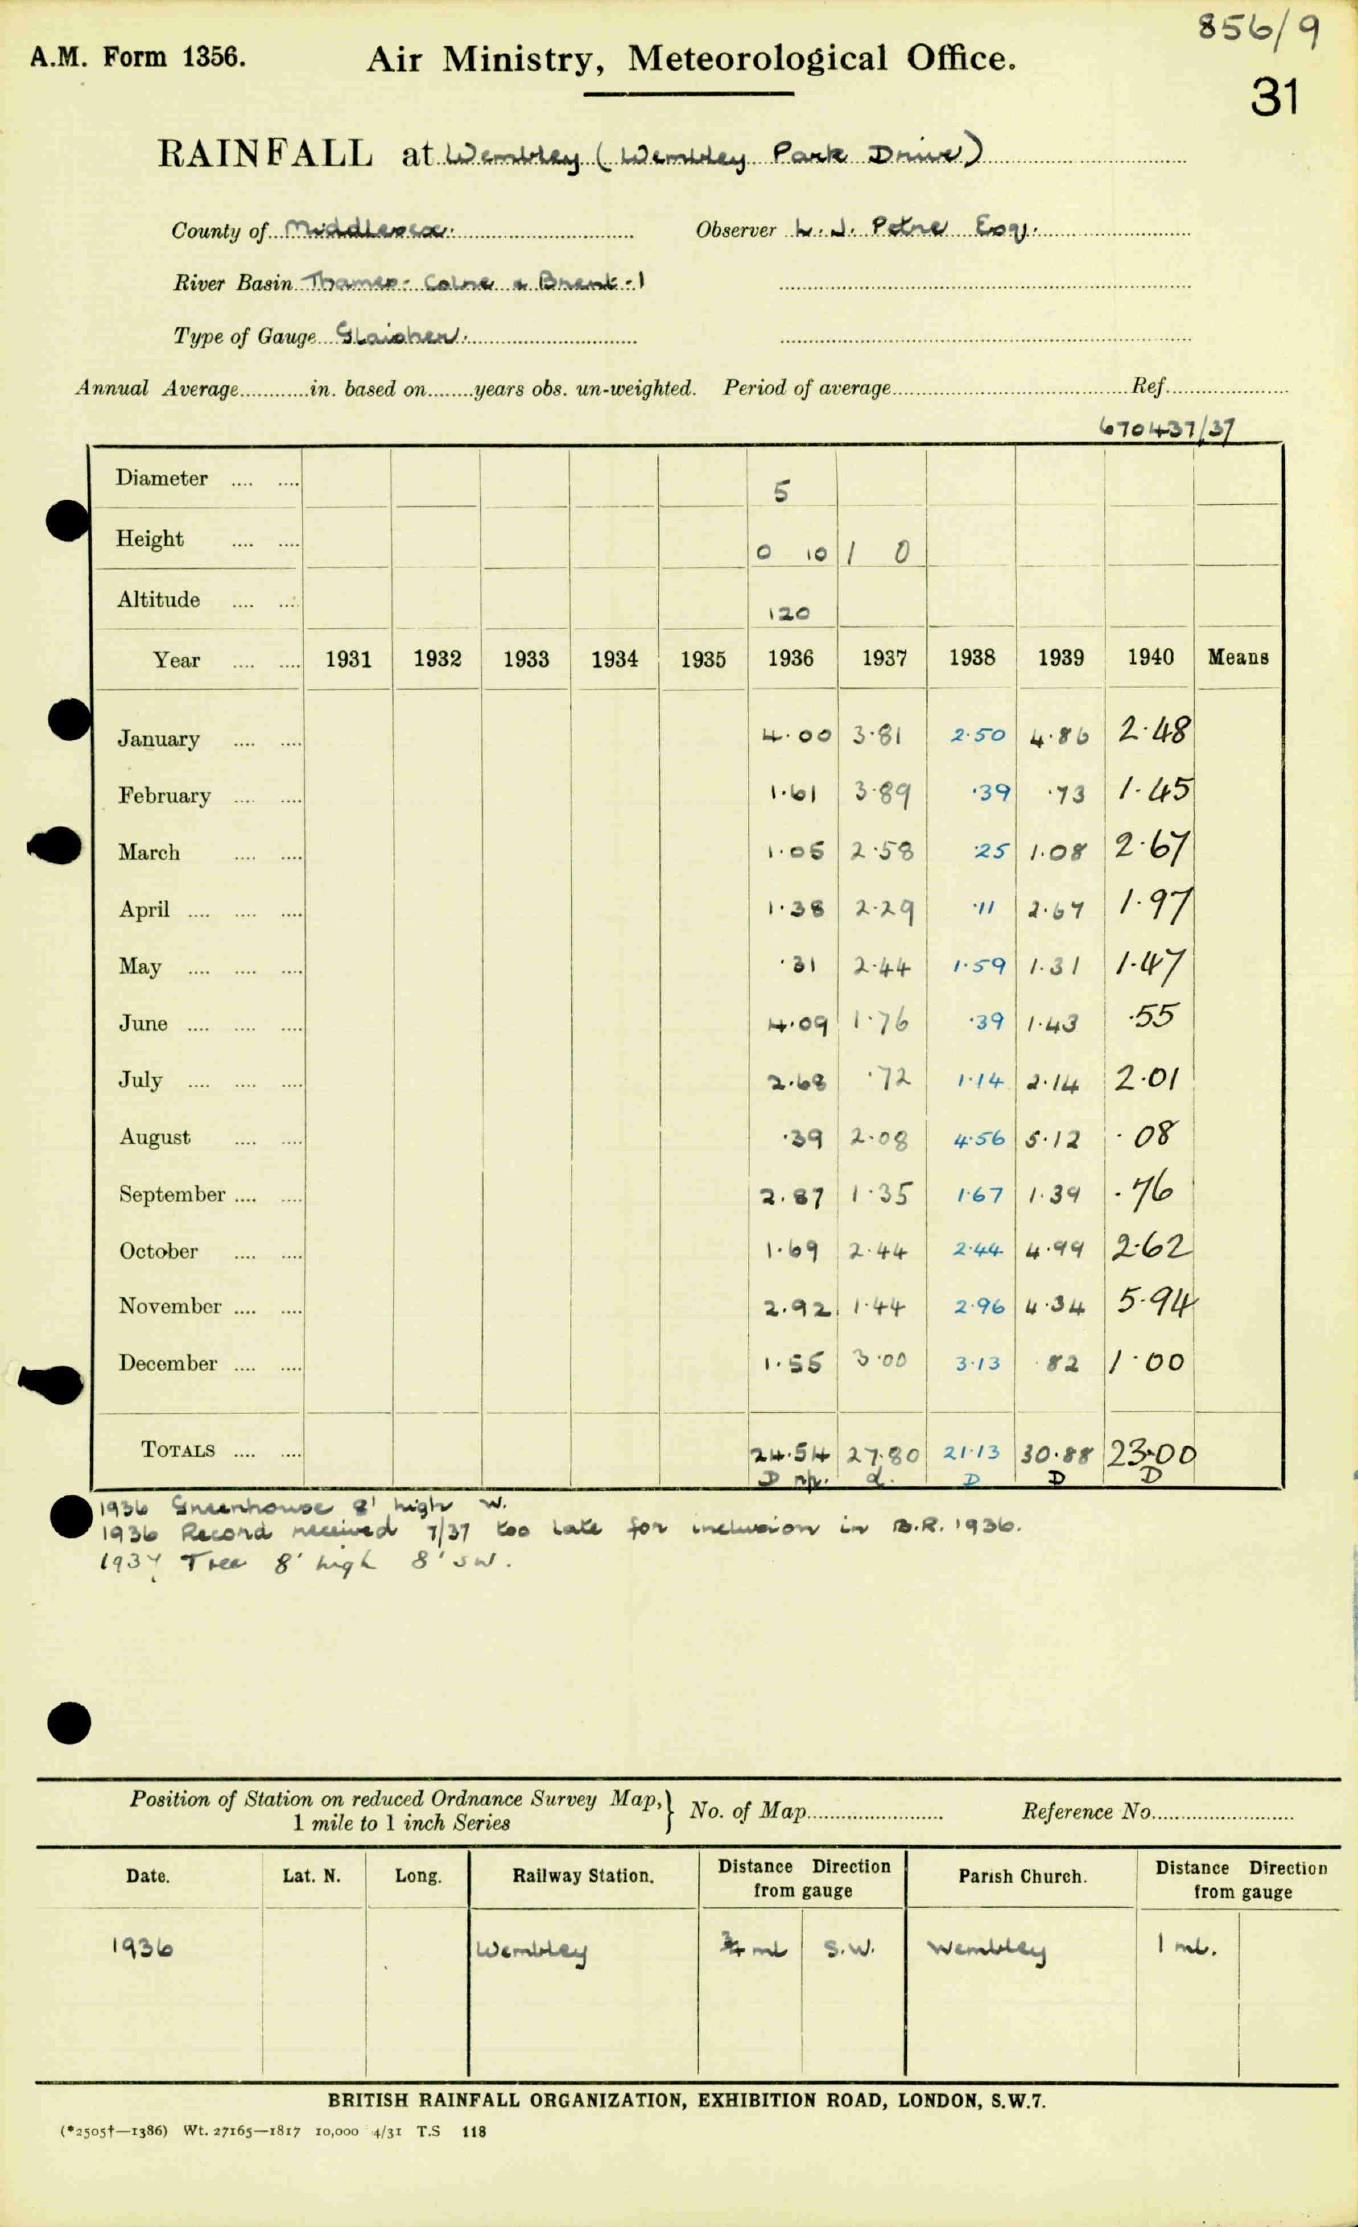 856/9
A.M. Form 1356. Air Ministry, Meteorological Office.
31
RAINFALL at Wembley (Wembley Park Drive)
County of Middlesex. Observer L. J. Petre Esq.
River Basin Thames - Colne & Brent - 1
Type of Gauge Glaisher.
Annual Average............in. based on........years obs. un-weighted. Period of average.......... Ref..........
670437/37
Diameter .... .... 5
Height .... .... 0 10 1 0
Altitude .... .... 120
Year .... .... 1931 1932 1933 1934 1935 1936 1937 1938 1939 1940 Means
January .... .... 4·00 3·81 2·50 4·86 2·48
February .... .... 1·61 3·89 ·39 ·73 1·45
March .... .... 1·05 2·58 ·25 1·08 2·67
April .... .... .... 1·38 2·29 ·11 2·67 1·97
May .... .... .... ·31 2·44 1·59 1·31 1·47
June .... .... .... 4·09 1·76 ·39 1·43 ·55
July .... .... .... 2·68 ·72 1·14 2·14 2·01
August .... .... ·39 2·08 4·56 5·12 ·08
September .... .... 2·87 1·35 1·67 1·39 ·76
October .... .... 1·69 2·44 2·44 4·99 2·62
November .... .... 2·92 1·44 2·96 4·34 5·94
December .... .... 1·55 3·00 3·13 ·82 1·00
TOTALS .... .... 24·54 27·80 21·13 30·88 23·00
D np. d. D D D
1936 Greenhouse 8' high W.
1936 Record received 7/37 too late for inclusion in B.R. 1936.
1937 Tree 8' high 8' SW.
Position of Station on reduced Ordnance Survey Map, 1 mile to 1 inch Series } No. of Map.......... Reference No..........
Date. Lat. N. Long. Railway Station. Distance Direction from gauge Parish Church. Distance Direction from gauge
1936 Wembley ¾ ml S.W. Wembley 1 ml.
BRITISH RAINFALL ORGANIZATION, EXHIBITION ROAD, LONDON, S.W.7.
(*2505†—1386) Wt. 27165—1817 10,000 4/31 T.S 118